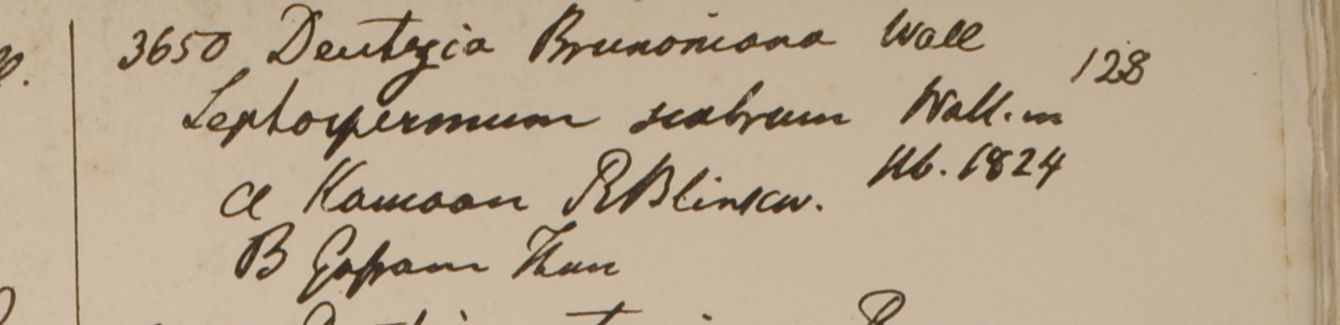 3650 Deutzia Brunoniana Wall
128
Leptospermum scabrum Wall. in
Hb. 1824
a Kamaon RBlinkw.
B Gossam Than